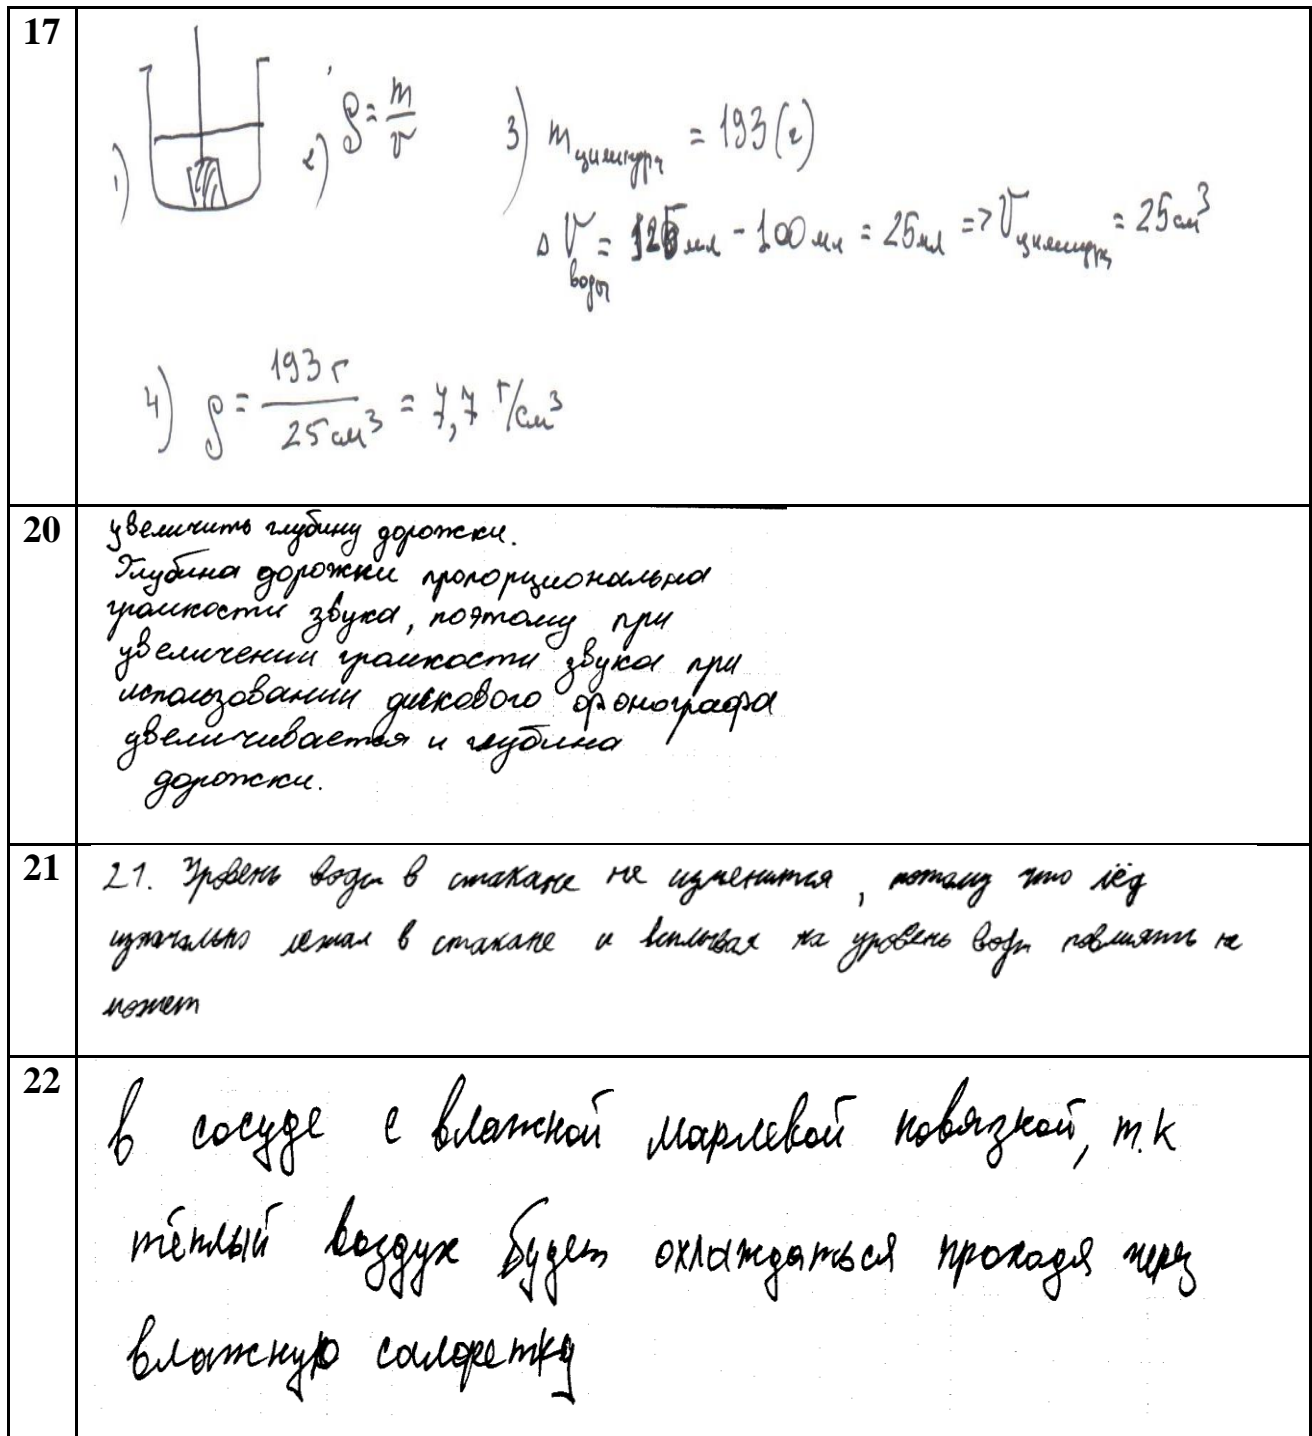 17
1)
2) ρ = m/v
3) m цилиндра = 193 (г)
Δ V воды = 126 мл - 100 мл = 26 мл => V цилиндра = 25 см³
4) ρ = 193 г / 25 см³ = 7,7 г/см³
20
увеличить глубину дорожки.
Глубина дорожки пропорциональна
громкости звука, поэтому при
увеличении громкости звука при
использовании дискового фонографа
увеличивается и глубина
дорожки.
21
21. Уровень воды в стакане не изменится, потому что лёд
изначально лежал в стакане и всплывая на уровень воды повлиять не
может
22
в сосуде с влажной марлевой повязкой, т.к
тёплый воздух будет охлаждаться проходя через
влажную салфетку